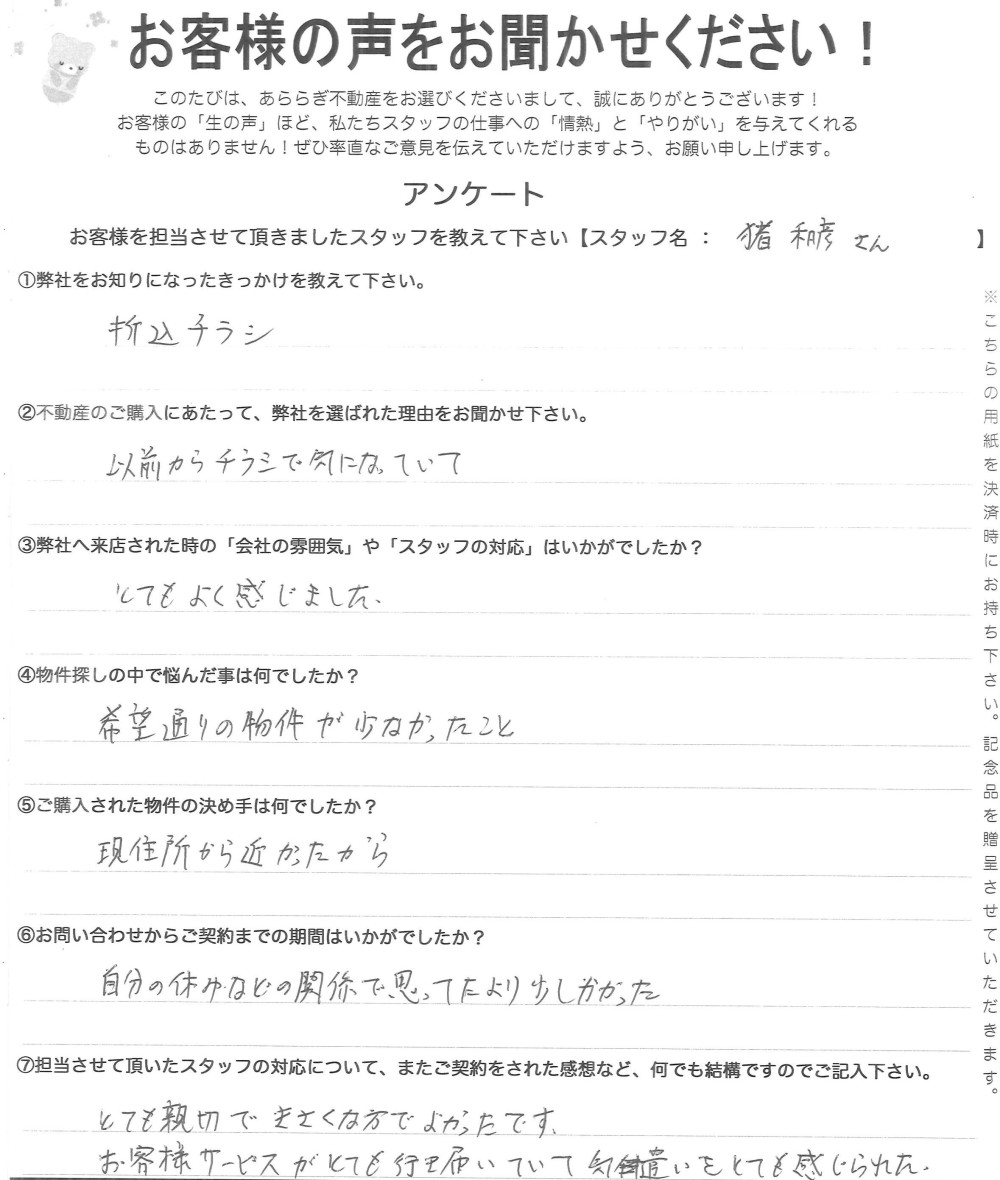 お客様の声をお聞かせください！
このたびは、あららぎ不動産をお選びくださいまして、誠にありがとうございます！
お客様の「生の声」ほど、私たちスタッフの仕事への「情熱」と「やりがい」を与えてくれる
ものはありません！ぜひ率直なご意見を伝えていただけますよう、お願い申し上げます。
アンケート
お客様を担当させて頂きましたスタッフを教えて下さい【スタッフ名 ： 猪 和彦 さん 】
①弊社をお知りになったきっかけを教えて下さい。
折込チラシ
②不動産のご購入にあたって、弊社を選ばれた理由をお聞かせ下さい。
以前からチラシで気になっていて
③弊社へ来店された時の「会社の雰囲気」や「スタッフの対応」はいかがでしたか？
とてもよく感じました。
④物件探しの中で悩んだ事は何でしたか？
希望通りの物件が少なかったこと
⑤ご購入された物件の決め手は何でしたか？
現住所から近かったから
⑥お問い合わせからご契約までの期間はいかがでしたか？
自分の休みなどの関係で思ってたより少しかかった
⑦担当させて頂いたスタッフの対応について、またご契約をされた感想など、何でも結構ですのでご記入下さい。
とても親切できさくな方でよかったです。
お客様サービスがとても行き届いていて気遣いをとても感じられた。
※こちらの用紙を決済時にお持ち下さい。記念品を贈呈させていただきます。